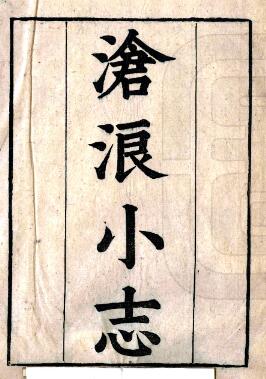 滄浪小志